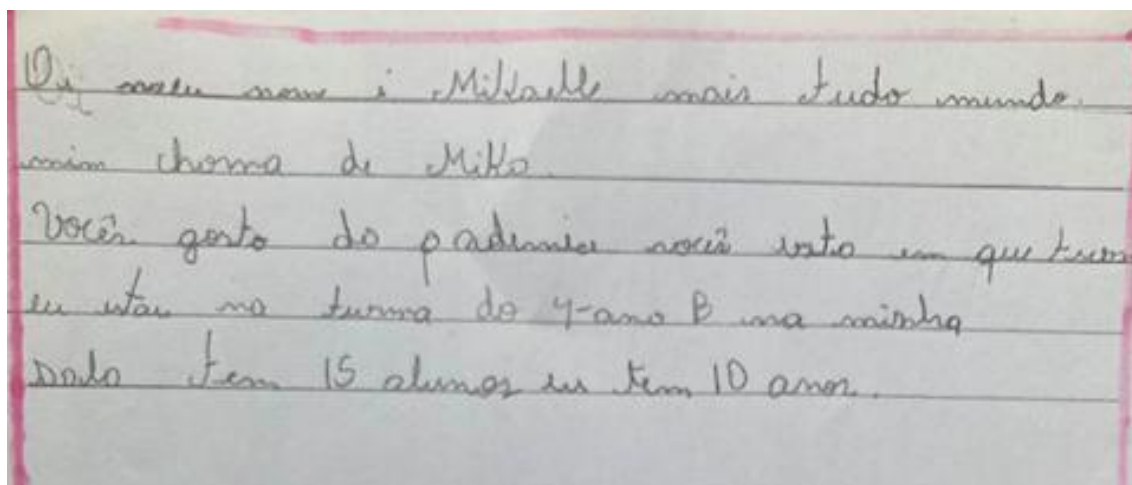 Oi meu nome i Mikaelle mais tudo mundo.
mim choma de Mika.
Você gosto do pademia você esto em que turm
eu estou na turma do 4-ano B na minha
sala tem 15 alunos eu tem 10 anos.